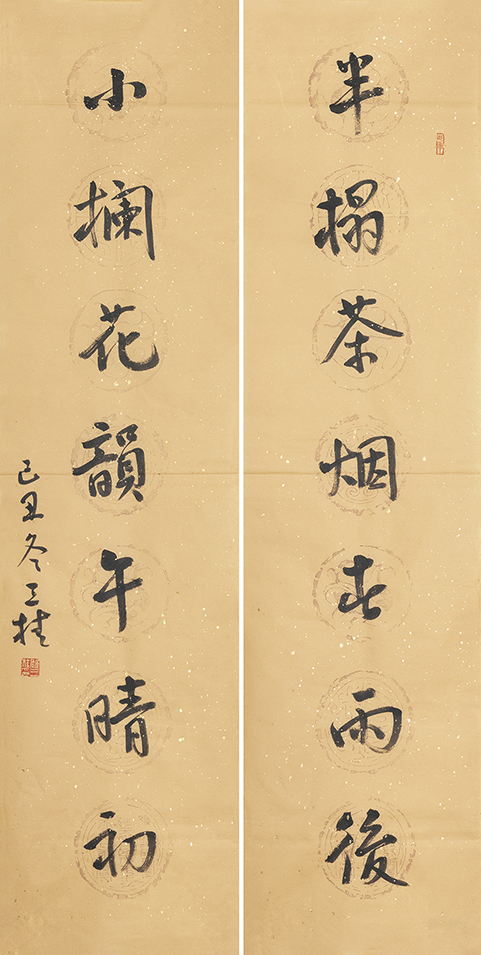 半榻茶烟春雨後
小欄花韻午晴初
己丑冬